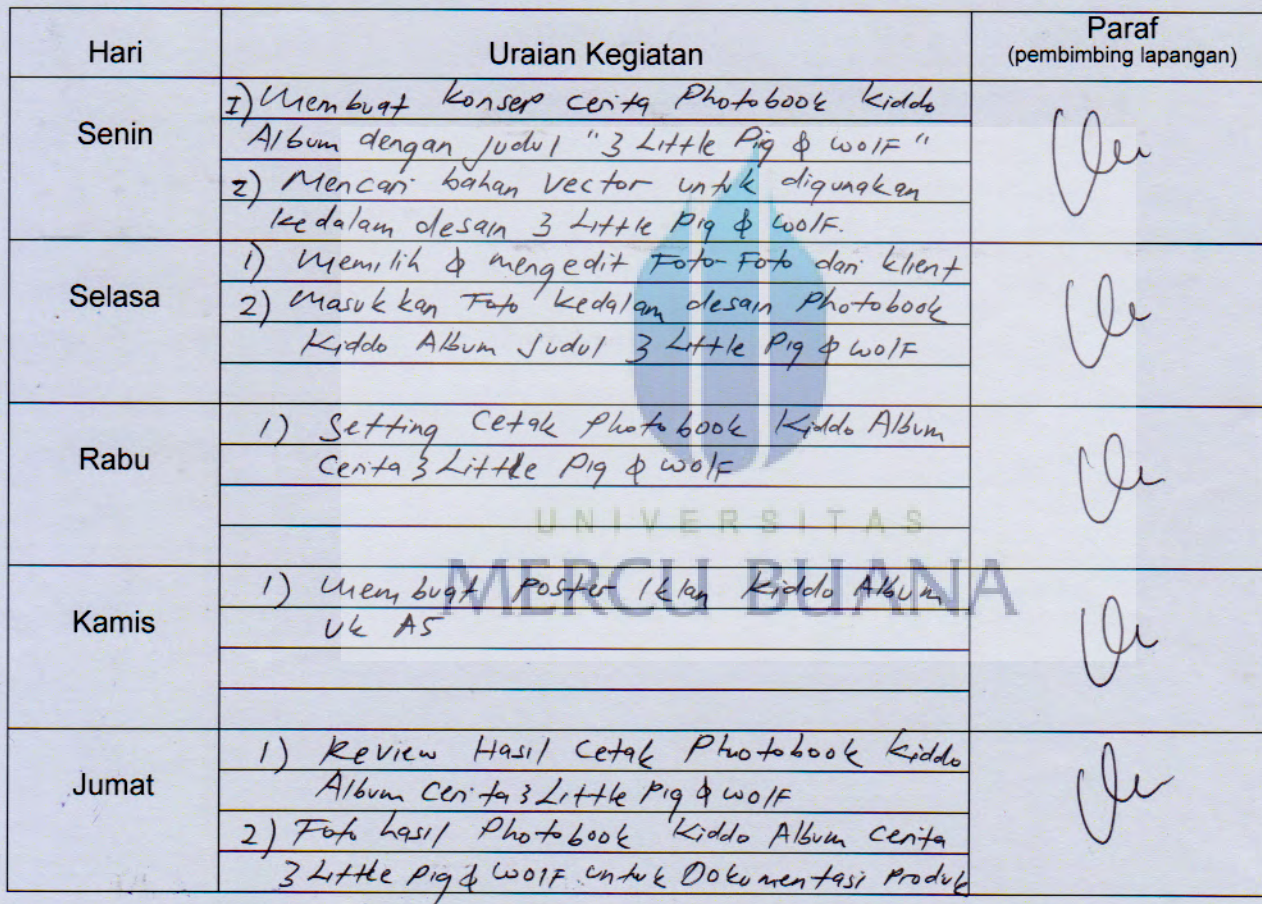 Hari Uraian Kegiatan Paraf
(pembimbing lapangan)
Senin
1) Membuat konsep cerita Photobook kiddo
Album dengan judul "3 Little Pig & wolf"
2) Mencari bahan vector untuk digunakan
kedalam desain 3 Little Pig & wolf.
Selasa
1) Memilih & mengedit Foto-Foto dari klient
2) Masukkan Foto kedalam desain Photobook
Kiddo Album Judul 3 Little Pig & wolf
Rabu
1) Setting Cetak Photobook Kiddo Album
Cerita 3 Little Pig & wolf
UNIVERSITAS
MERCU BUANA
Kamis
1) Membuat Poster Iklan Kiddo Album
Uk A5
Jumat
1) Review Hasil Cetak Photobook Kiddo
Album Cerita 3 Little Pig & wolf
2) Foto hasil Photobook Kiddo Album Cerita
3 Little Pig & wolf untuk Dokumentasi Produk